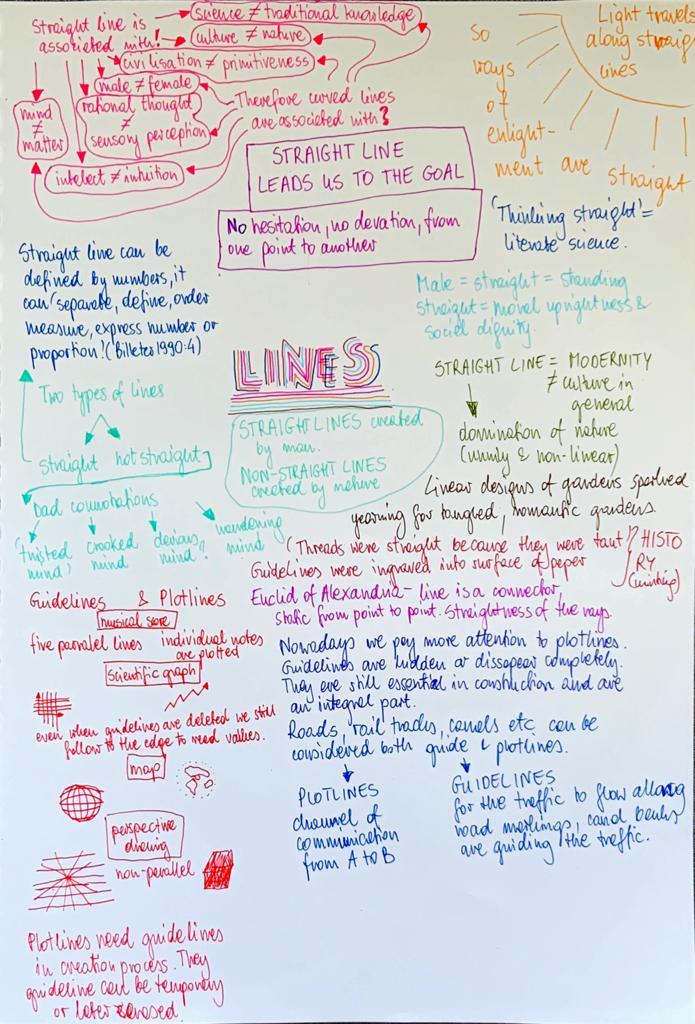 Straight line is
associated with!
science ≠ traditional knowledge
culture ≠ nature
civilisation ≠ primitiveness
male ≠ female
rational thought
≠
sensory perception
mind
≠
matter
intelect ≠ intuition
Therefore curved lines
are associated with?
Light travels
along straigh
lines
So
ways
of
enlight-
ment are straight
STRAIGHT LINE
LEADS US TO THE GOAL
No hesitation, no devation, from
one point to another
'Thinking straight' =
literate science.
Straight line can be
defined by numbers, it
can 'separate, define, order
measure, express number or
proportion! (Billeter 1990:4)
Male = straight = standing
straight = moral uprightness &
social dignity.
STRAIGHT LINE = MODERNITY
≠ culture in
general
domination of nature
(unruly & non-linear)
LINES
STRAIGHT LINES created
by man.
NON-STRAIGHT LINES
created by nature
Two types of lines
Straight not straight
Bad connotations
'twisted
mind'
crooked
mind
devious
mind?
wandening
mind
Linear designs of gardens sparked
yearning for tangled, romantic gardens.
(Threads were straight because they were taut)
Guidelines were ingraved into surface of peper
HISTO
RY
Euclid of Alexandria - line is a connector,
static from point to point. Straightness of the rays.
Guidelines & Plotlines
musical score
five parralel lines individual notes
are plotted
Scientific graph
even when guidelines are deleted we still
follow to the edge to read values.
map
perspective
drawing
non-parallel
Plotlines need guidelines
in creation process. They
guideline can be temporary
or later erased.
Nowadays we pay more attention to plotlines.
Guidelines are hidden or dissapear completely.
They are still essential in construction and are
an integral part.
Roads, rail tracks, canals etc. can be
considered both guide & plotlines.
PLOTLINES
channel of
communication
from A to B
GUIDELINES
for the traffic to flow allong
road markings, canal banks
are guiding the traffic.